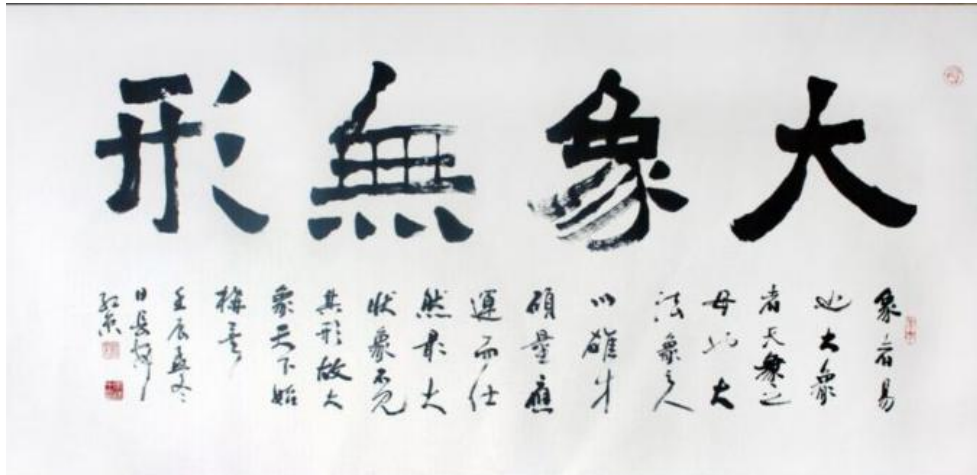 大象無形
象者易
也大象
者天象之
母也大
法象之人
以雄才
碩量應
運而仕
然大
狀象不見
其形故大
象天下始
壬辰孟冬
日長